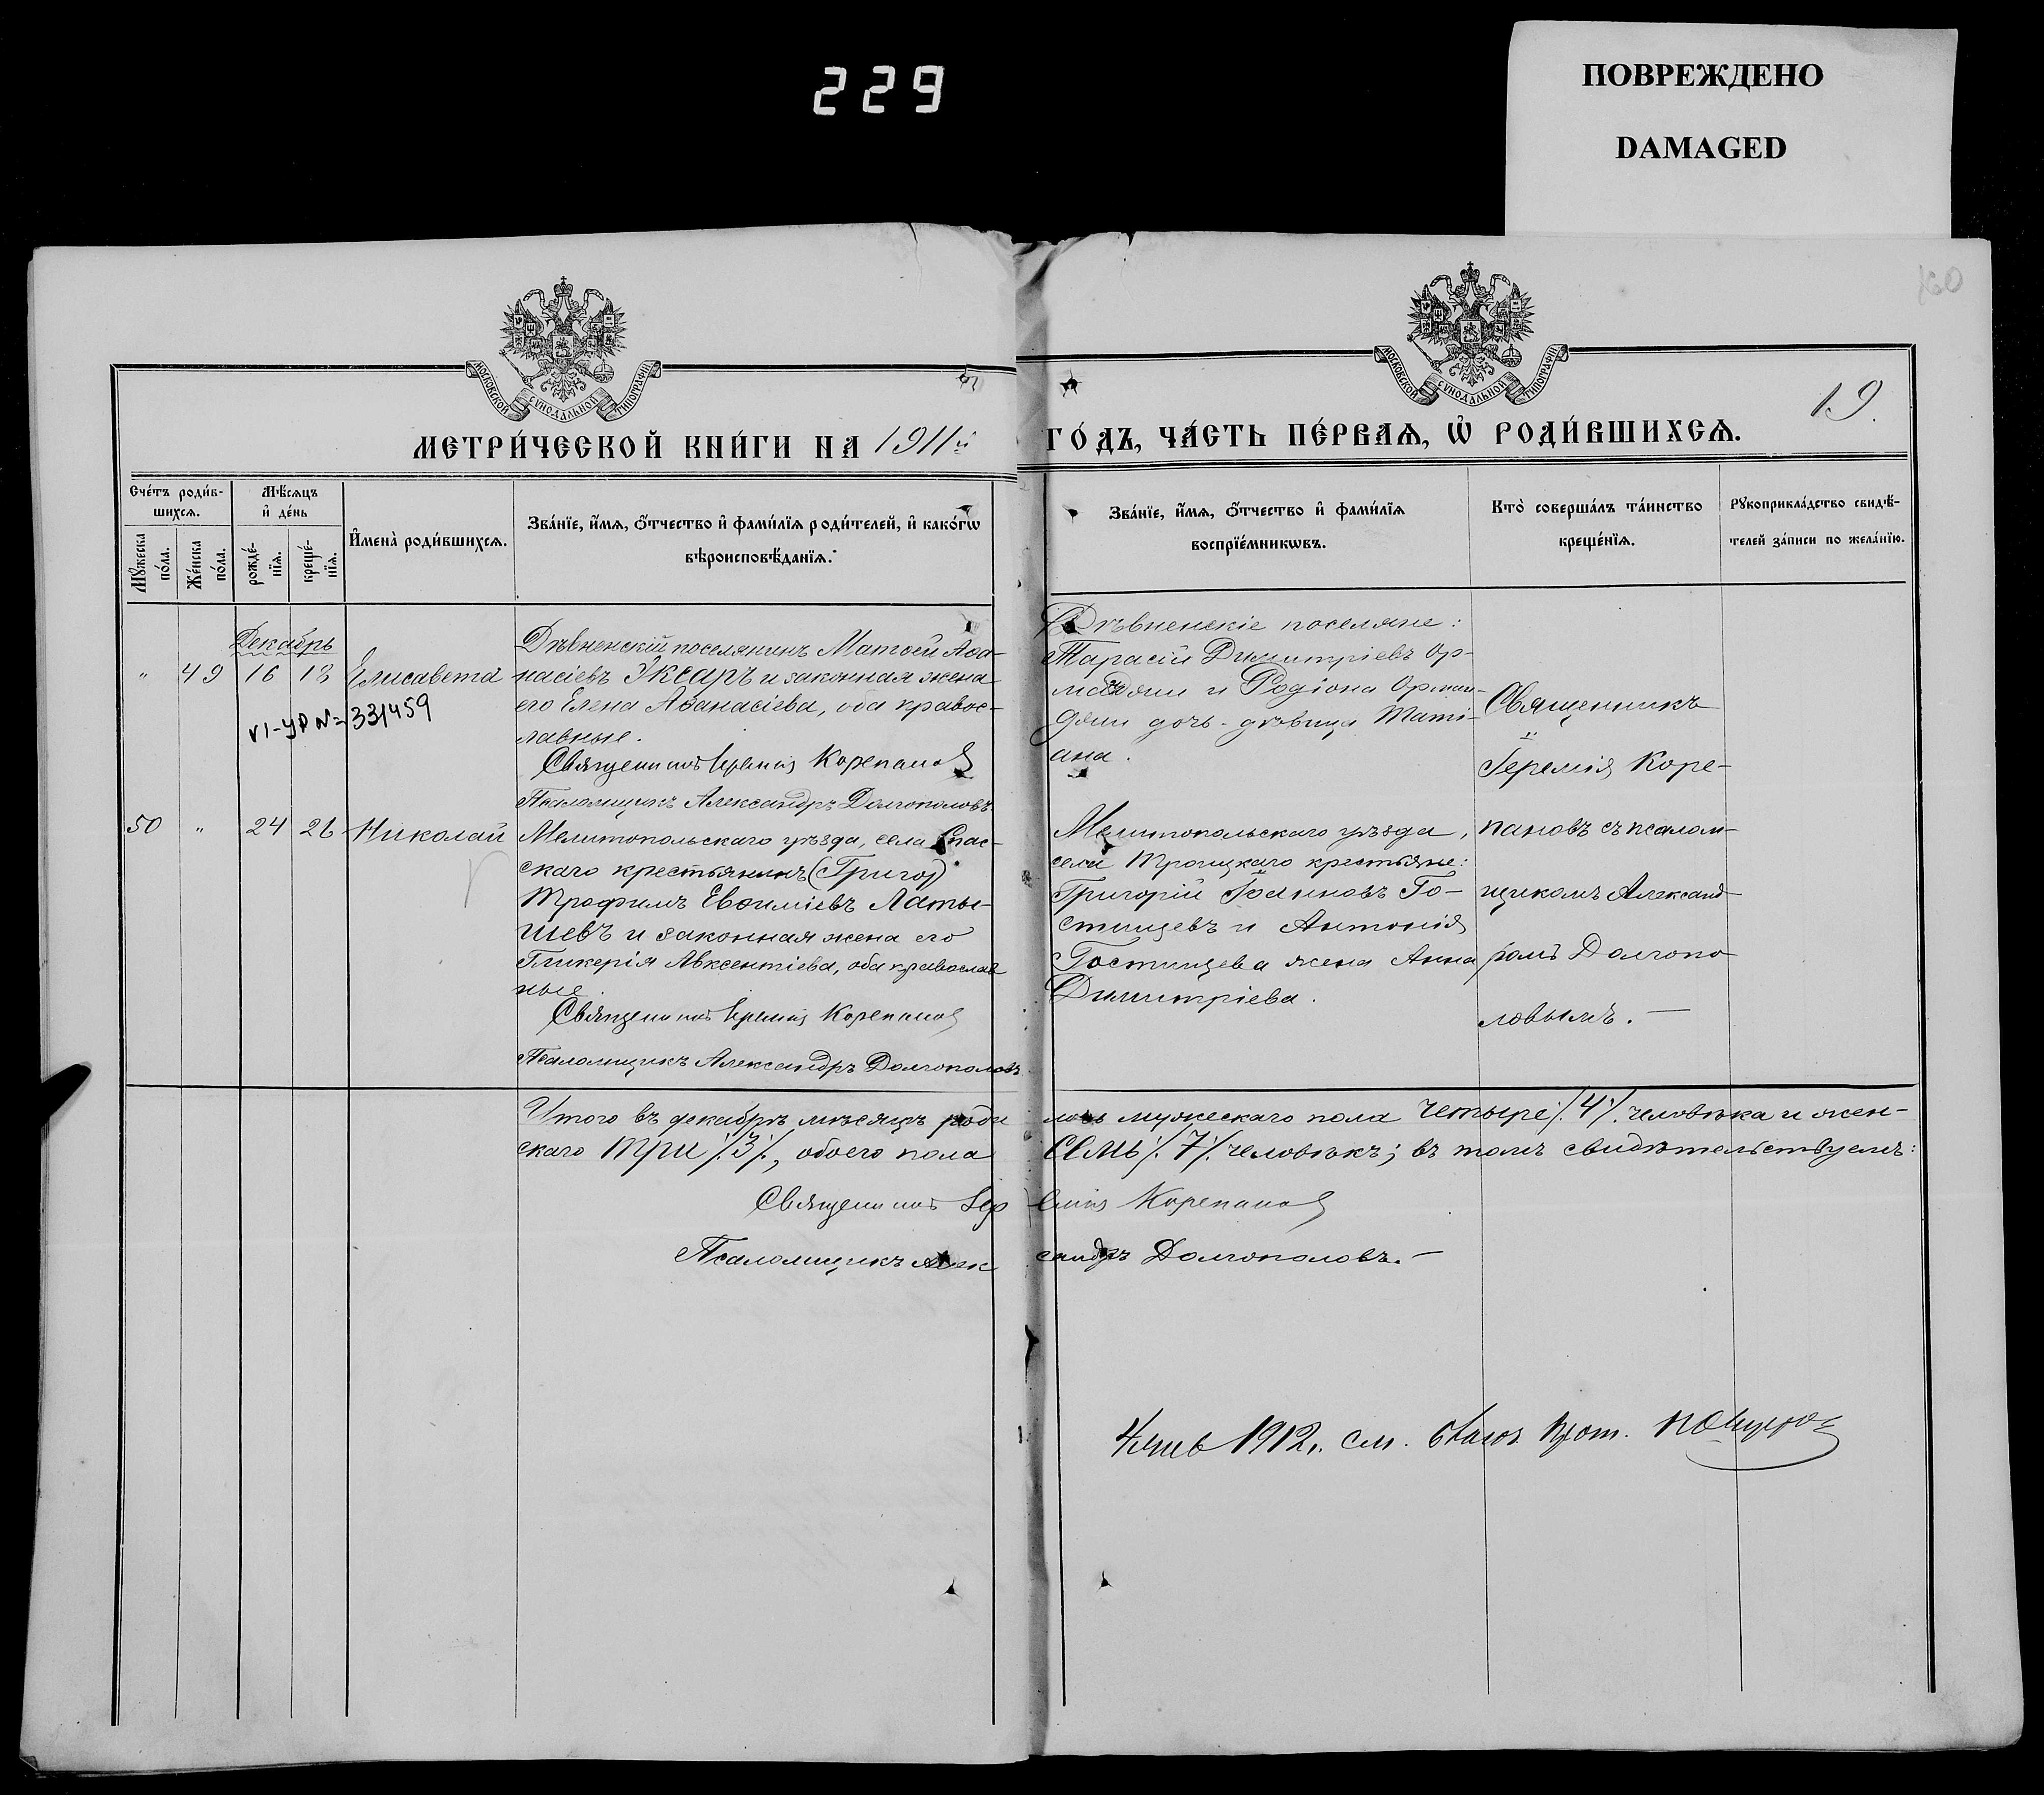 229
ПОВРЕЖДЕНО
DAMAGED
160
МОСКОВСКОЙ СѴНОДАЛЬНОЙ ТИПОГРАФІИ
МОСКОВСКОЙ СѴНОДАЛЬНОЙ ТИПОГРАФІИ
19.
МЕТРИ́ЧЕСКОЙ КНИ́ГИ НА 1911й
ГО́ДЪ, ЧА́СТЬ ПЕ́РВАѦ, Ѡ҆ РОДИ́ВШИХСѦ.
Сче́тъ роди́в-
шихсѧ.
Мꙋ́жеска
по́ла.
Же́нска
по́ла.
Мѣ́сѧцъ
и҆ де́нь
рожде́-
нїѧ.
креще́-
нїѧ.
И҆мена̀ роди́вшихсѧ.
Зва́нїе, и҆́мѧ, ѻ҆́тчество и҆ фами́лїѧ роди́телей, и҆ како́гѡ
вѣроисповѣ́данїѧ.
Зва́нїе, и҆́мѧ, ѻ҆́тчество и҆ фами́лїѧ
воспрїе́мникѡвъ.
Кто̀ соверша́лъ та́инство
креще́нїѧ.
Рꙋкоприкла́дство свидѣ́-
телей за́писи по жела́нїю.
Декабрь
" 49 16 18 Елисавета
Дѣвненскій поселянинъ Матѳей Аѳа-
насіевъ Уксаръ и законная жена
его Елена Аѳанасіева, оба правос-
лавные.
VI-УР №=331459
Священникъ Іеремія Корепановъ
Псаломщикъ Александръ Долгополовъ
Дѣвненскіе поселяне:
Тарасій Димитріевъ Ор-
манджи и Родіона Орман-
джи дочь-дѣвица Тати-
ана.
50 " 24 26 Николай
Мелитопольскаго уѣзда, села Спас-
скаго крестьянинъ (Григор)
Трофимъ Евѳиміевъ Латы-
шевъ и законная жена его
Гликерія Авксентіева, оба православ
ные.
Священникъ Іеремія Корепановъ
Псаломщикъ Александръ Долгополовъ
Мелитопольскаго уѣзда,
села Троицкаго крестьяне:
Григорій Іоанновъ Го-
стищевъ и Антонія
Гостищева жена Анна
Димитріева.
Священникъ
Іеремія Коре-
пановъ съ псалом-
щикомъ Александ-
ромъ Долгопо
ловымъ.—
Итого въ декабрѣ мѣсяцѣ роди лось мужескаго пола четыре /.4./ человѣка и жен-
скаго три /.3./, обоего пола семь /.7./ человѣкъ; въ томъ свидѣтельствуемъ:
Священникъ Іер емія Корепановъ
Псаломщикъ Алек сандръ Долгополовъ.—
1912. см. Благоч. Прот.